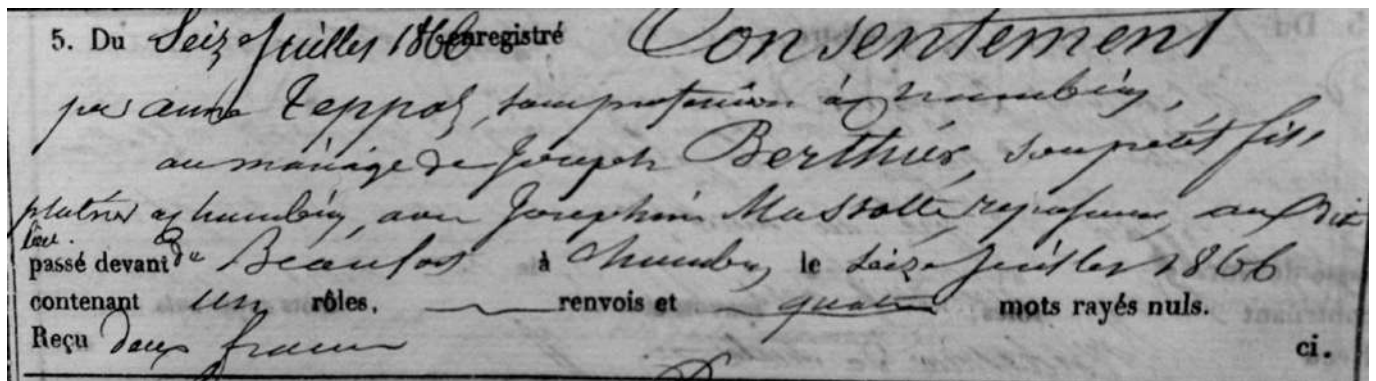 5. Du Seize Juillet 1866 enregistré Consentement
par anne Teppaz, sans profession à Chambéry,
au mariage de Joseph Berthier, son petit fils
plâtrier à Chambéry, avec Josephine Massotte, repasseuse, au dit
lieu.
passé devant Me Beaufort à Chambéry le Seize Juillet 1866
contenant un rôles, renvois et quatre mots rayés nuls.
Reçu deux francs ci.